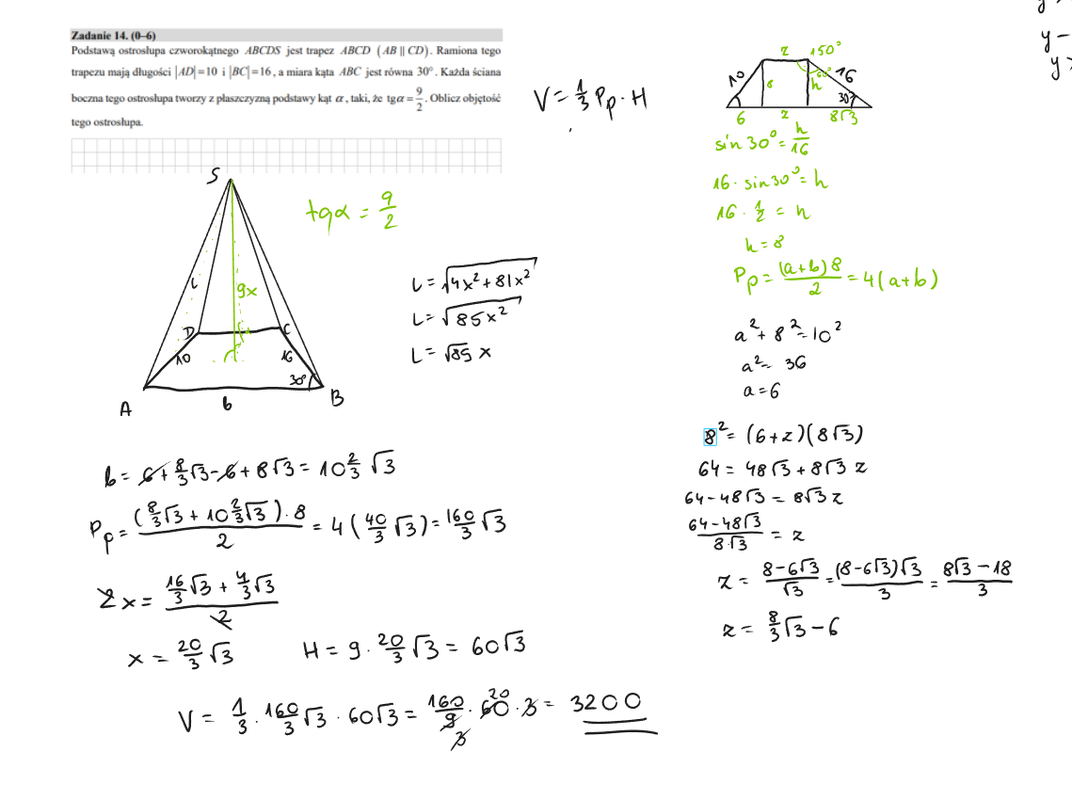 Zadanie 14. (0–6)
Podstawą ostrosłupa czworokątnego ABCDS jest trapez ABCD (AB || CD). Ramiona tego
trapezu mają długości |AD|=10 i |BC|=16, a miara kąta ABC jest równa 30°. Każda ściana
boczna tego ostrosłupa tworzy z płaszczyzną podstawy kąt α, taki, że tgα = 9/2. Oblicz objętość
tego ostrosłupa.
S
tgα = 9/2
L
9x
D
C
10
16
30°
A
b
B
L = √(4x²+81x²)
L = √(85x²)
L = √85 x
V = 1/3 Pp · H
z 150°
10
8
h
60°
16
30°
6 z 8√3
sin 30° = h/16
16 · sin 30° = h
16 · 1/2 = h
h = 8
Pp = (a+b)8/2 = 4(a+b)
a² + 8² = 10²
a² = 36
a = 6
8² = (6+z)(8√3)
64 = 48√3 + 8√3 z
64 - 48√3 = 8√3 z
(64-48√3)/(8·√3) = z
z = (8-6√3)/√3 = (8-6√3)√3/3 = (8√3-18)/3
z = 8/3√3 - 6
b = 6 + 8/3√3 - 6 + 8√3 = 10 2/3 √3
Pp = (8/3√3 + 10 2/3√3) · 8/2 = 4(40/3 √3) = 160/3 √3
2x = (16/3√3 + 4/3√3)/2
x = 20/3 √3
H = 9 · 20/3 √3 = 60√3
V = 1/3 · 160/3 √3 · 60√3 = 160/9 · 60 · 3 = 3200
20
3
y -
y >